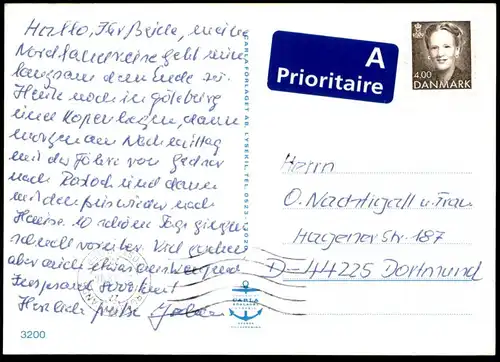 Hallo, Ihr Beide, meine
Nordlandreise geht nun
langsam dem Ende zu.
Heute noch in Göteborg
und Kopenhagen, dann
morgen am Nachmittag
mit der Fähre von Gedser
nach Rostock und dann
mit dem wieder nach
Hause. 10 schöne Tage gingen
schnell vorüber. Viel gesehen
aber auch etwas
Herzliche Grüße
3200
CARLA FÖRLAGET AB, LYSEKIL, TEL. 0523-
CARLA
A
Prioritaire
4.00
DANMARK
Herrn
O. Nachtigall u. Frau
Hagener Str. 187
D-44225 Dortmund